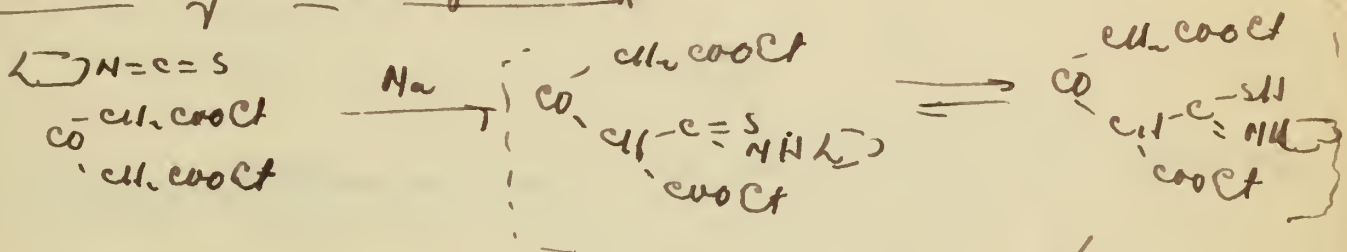 N=C=S
CH₂ COOEt
CO
CH₂ COOEt
Na
CH₂ COOEt
CO
CH-C=S
NH
COOEt
CH₂ COOEt
CO
CH-C-SH
=N
COOEt